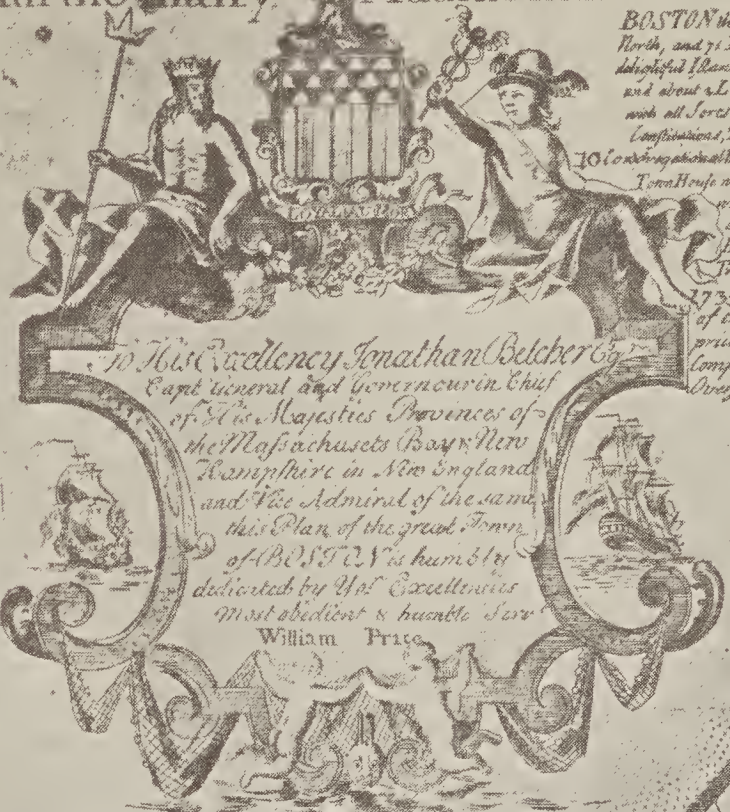 BOSTON
North, and 71
delightful
and about 2 L
with all Sorts
Constitutions,
10
Town House
LOYAL AU MORT
To His Excellency Jonathan Belcher Esqr.
Capt General and Governour in Chief
of His Majesties Provinces of
the Maſsachusets Bay & New
Hampſhire in New England
and Vice Admiral of the same
this Plan of the great Town
of BOSTON is humbly
dedicated by Yor Excellencies
Most obedient & humble Servt
William Price
173
of